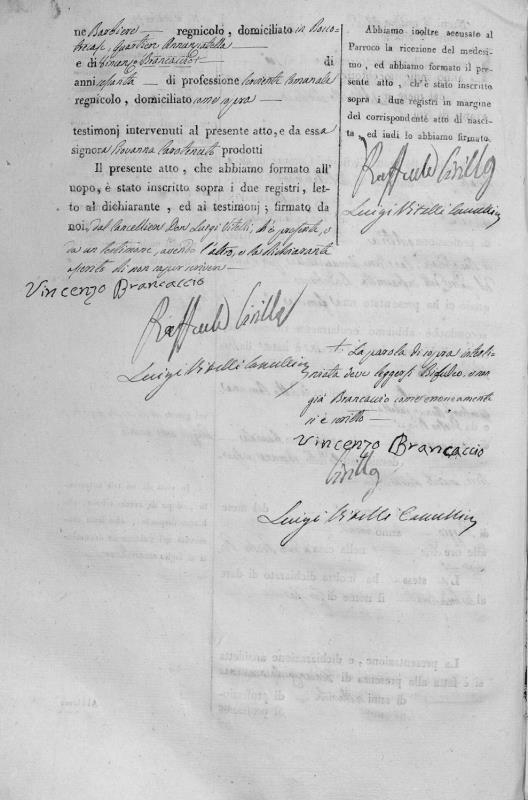 ne Barbiere regnicolo, domiciliato in Bosco-
trecase, quartiere Annunziatella
e di Vincenzo Brancaccio + di
anni sessanta di professione serviente comunale
regnicolo, domiciliato come sopra
testimonj intervenuti al presente atto, e da essa
signora Giovanna Carotenuto prodotti
Il presente atto, che abbiamo formato all'
uopo, è stato inscritto sopra i due registri, let-
to al dichiarante, ed ai testimonj; firmato da
noi, dal Cancelliere Don Luigi Vitelli, ch'è presente, e
da un testimone, avendo l'altro, e la dichiarante
asserito di non saper scrivere
Vincenzo Brancaccio
Raffaele Cirillo
Luigi Vitelli Cancelliere
Abbiamo inoltre accusato al
Parroco la ricezione del medesi-
mo, ed abbiamo formato il pre-
sente atto, ch'è stato inscritto
sopra i due registri in margine
del corrispondente atto di nasci-
ta, ed indi lo abbiamo firmato.
Raffaele Cirillo
Luigi Vitelli Cancelliere
+ La parola di sopra interli-
niata deve leggersi e non
già Brancaccio come erroneamente
si è scritto
Vincenzo Brancaccio
Cirillo
Luigi Vitelli Cancelliere